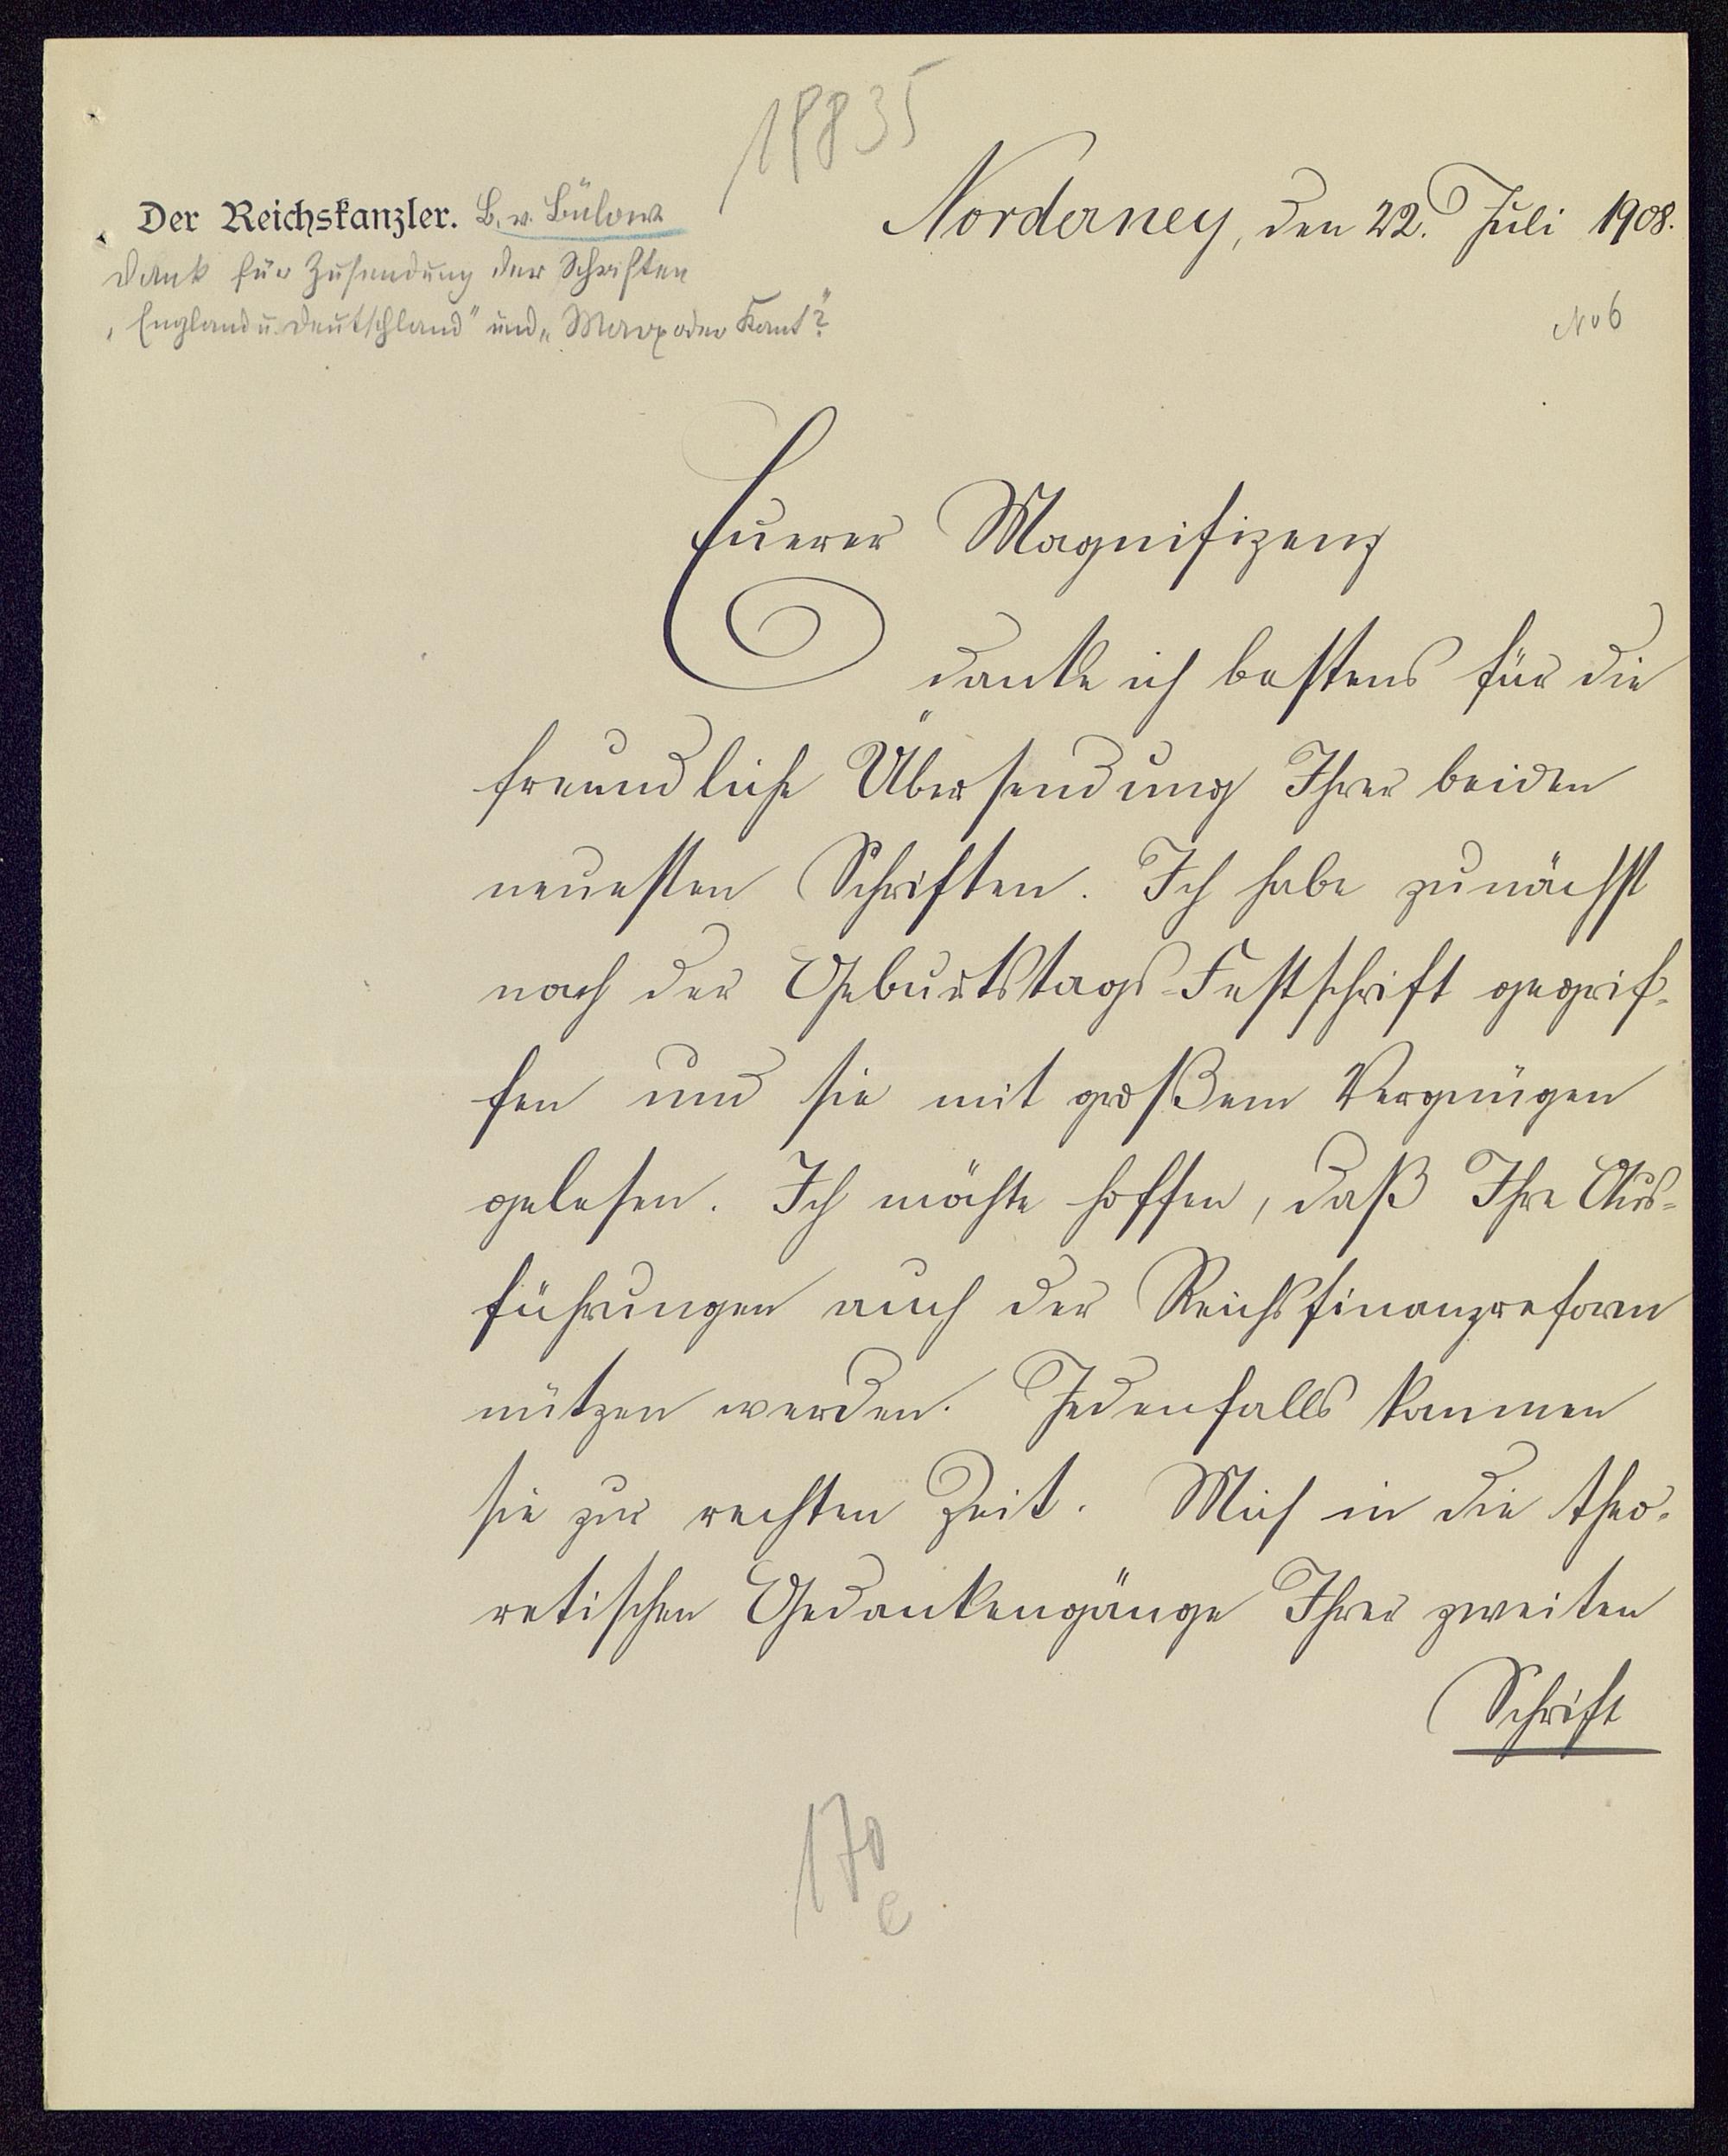 18835
Der Reichskanzler. B. v. Bülow
Norderney, den 22. Juli 1908.
Dank für Zusendung der Schriften
„England u. Deutschland" und „Marx oder Kant?"
No 6
Euerer Magnifizenz
danke ich bestens für die
freundliche Übersendung Ihrer beiden
neuesten Schriften. Ich habe zunächst
nach der Geburtstags-Festschrift gegrif-
fen und sie mit großem Vergnügen
gelesen. Ich möchte hoffen, daß Ihre Aus-
führungen auch der Reichsfinanzreform
nützen werden. Jedenfalls kommen
sie zur rechten Zeit. Mich in die theo-
retischen Gedankengänge Ihrer zweiten
Schrift
170
e